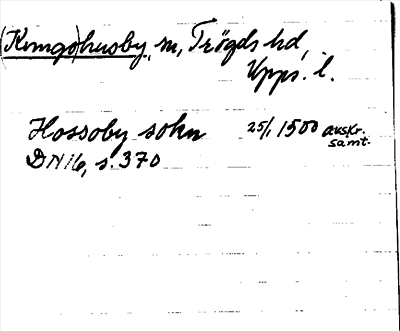 (Kungs)husby, sn, Trögds hd,
Upps. l.
Hossoby sokn 25/1 1500 avskr.
samt.
DN 16, s. 370